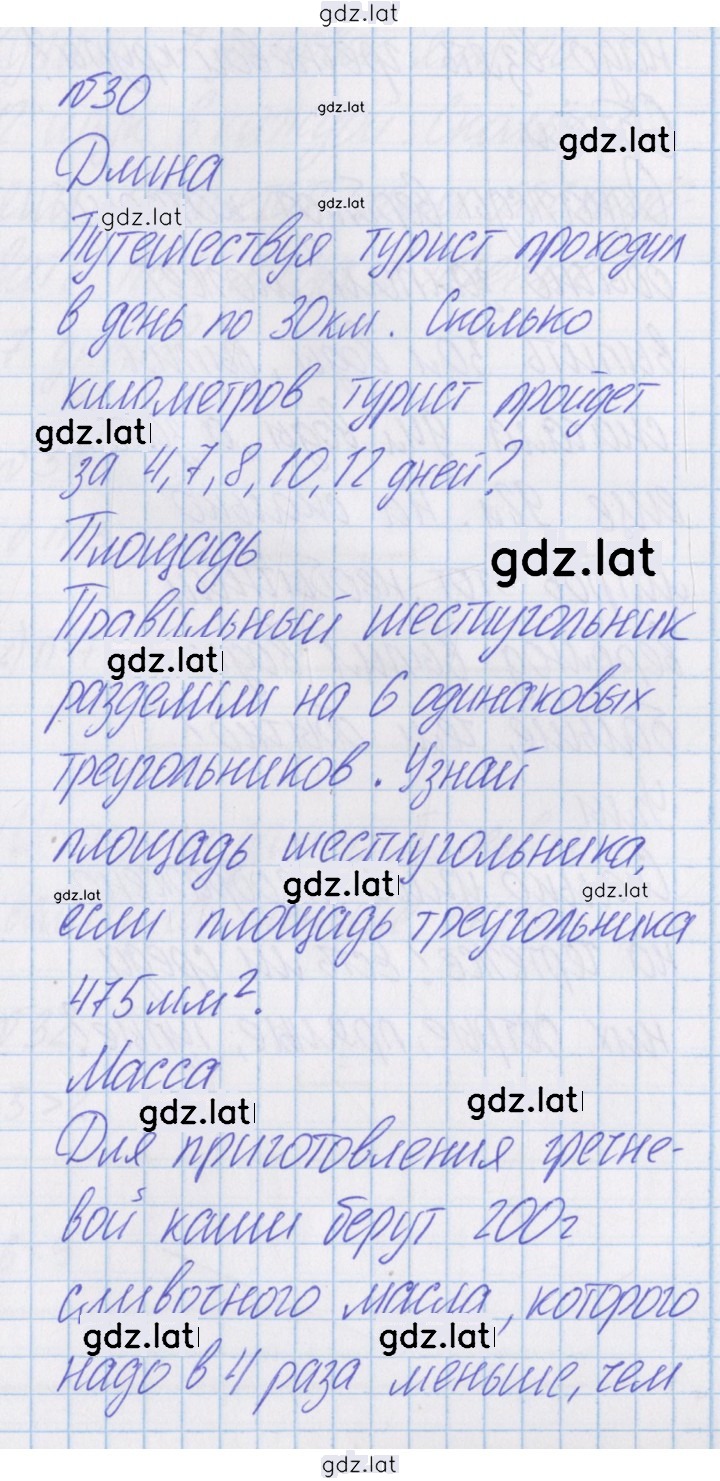 gdz.lat
№30
gdz.lat
gdz.lat
Длина
gdz.lat
gdz.lat
Путешествуя турист проходил
в день по 30км. Сколько
километров турист пройдет
gdz.lat
за 4, 7, 8, 10, 12 дней?
Площадь
gdz.lat
Правильный шестиугольник
gdz.lat
разделили на 6 одинаковых
треугольников. Узнай
площадь шестиугольника,
gdz.lat
gdz.lat
gdz.lat
если площадь треугольника
475 мм².
Масса
gdz.lat
gdz.lat
Для приготовления гречне-
вой каши берут 200г
сливочного масла, которого
gdz.lat
gdz.lat
надо в 4 раза меньше, чем
gdz.lat